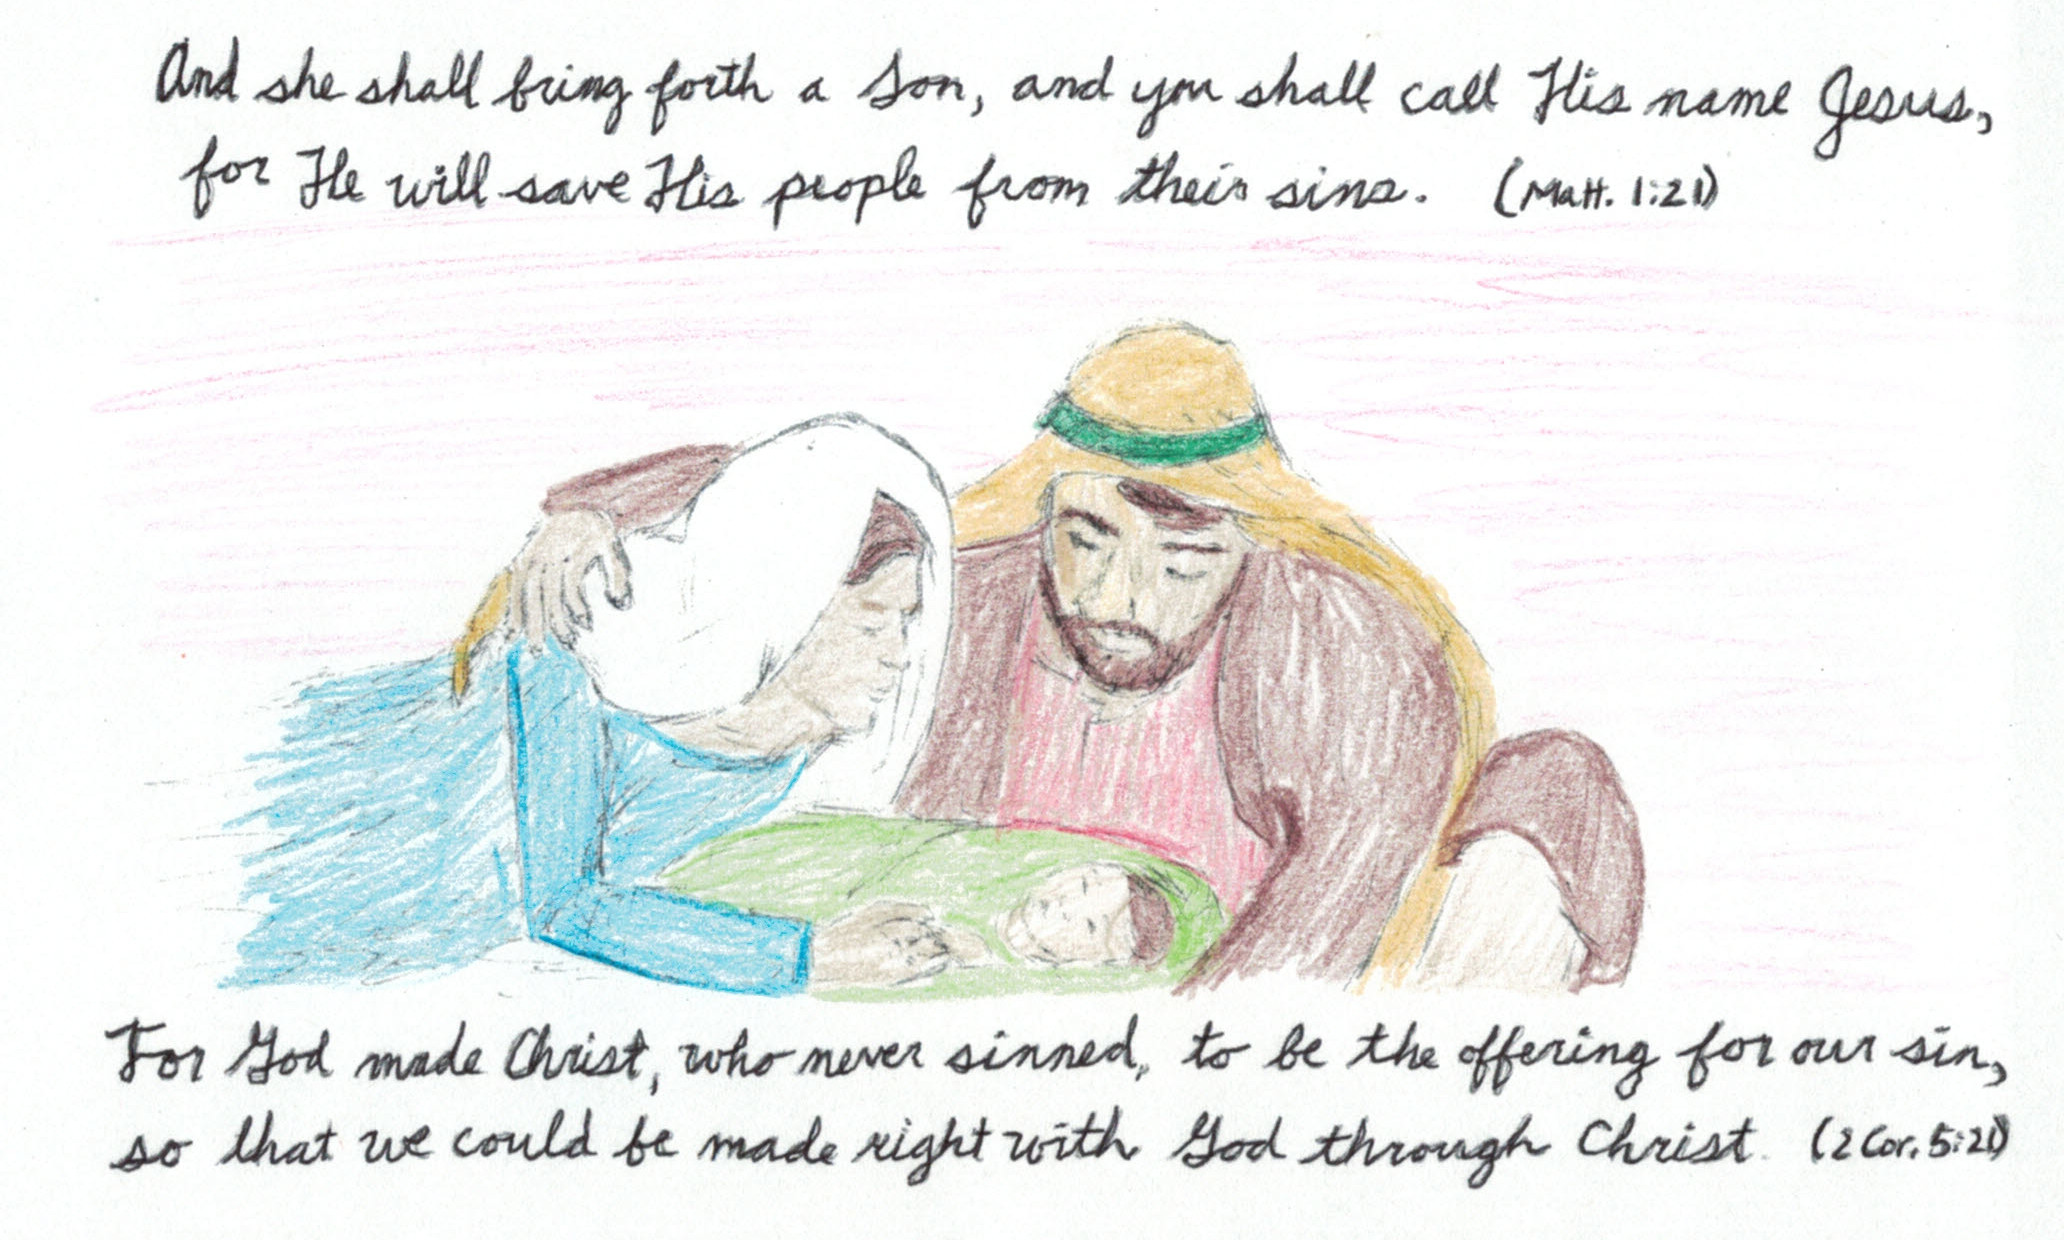 And she shall bring forth a Son, and you shall call His name Jesus,
for He will save His people from their sins. (Matt. 1:21)
For God made Christ, who never sinned, to be the offering for our sin,
so that we could be made right with God through Christ. (2 Cor. 5:21)